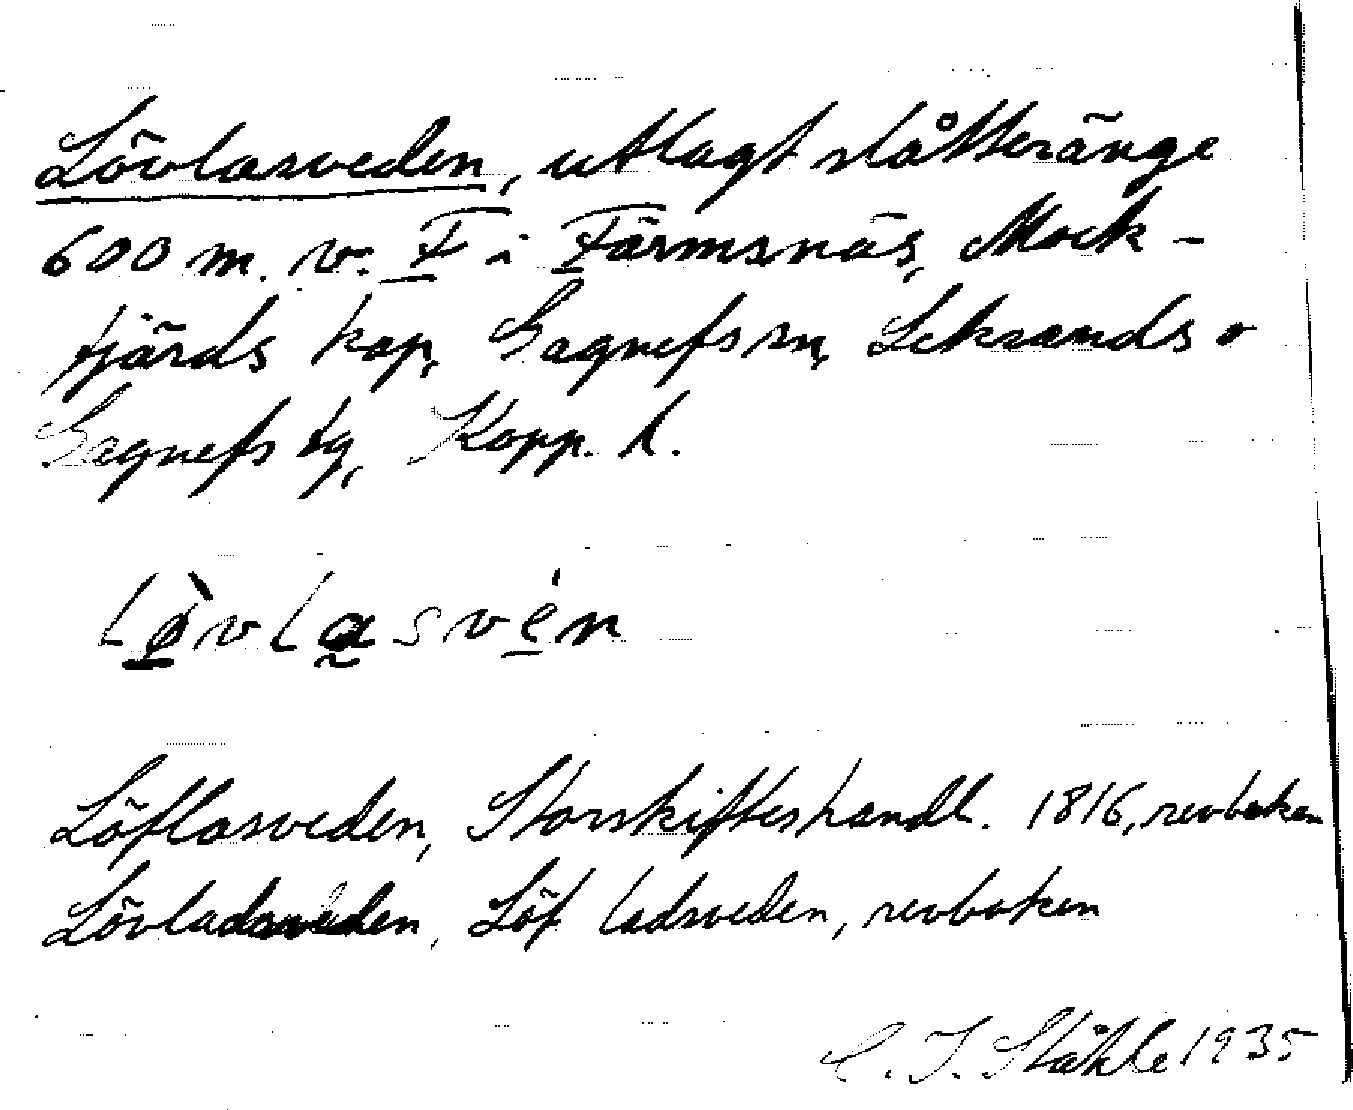 Lövlasveden, utlagt slåtteränge
600 m. v. F i Färmsnäs, Mock-
fjärds kap, Gagnefs sn, Leksands o
Gagnefs tg, Kopp. l.
lövlasvén
Löflasveden, Storskifteshandl. 1816, revboken
Lövladsveden, Löf ladsveden, revboken
C. I. Ståhle 1935